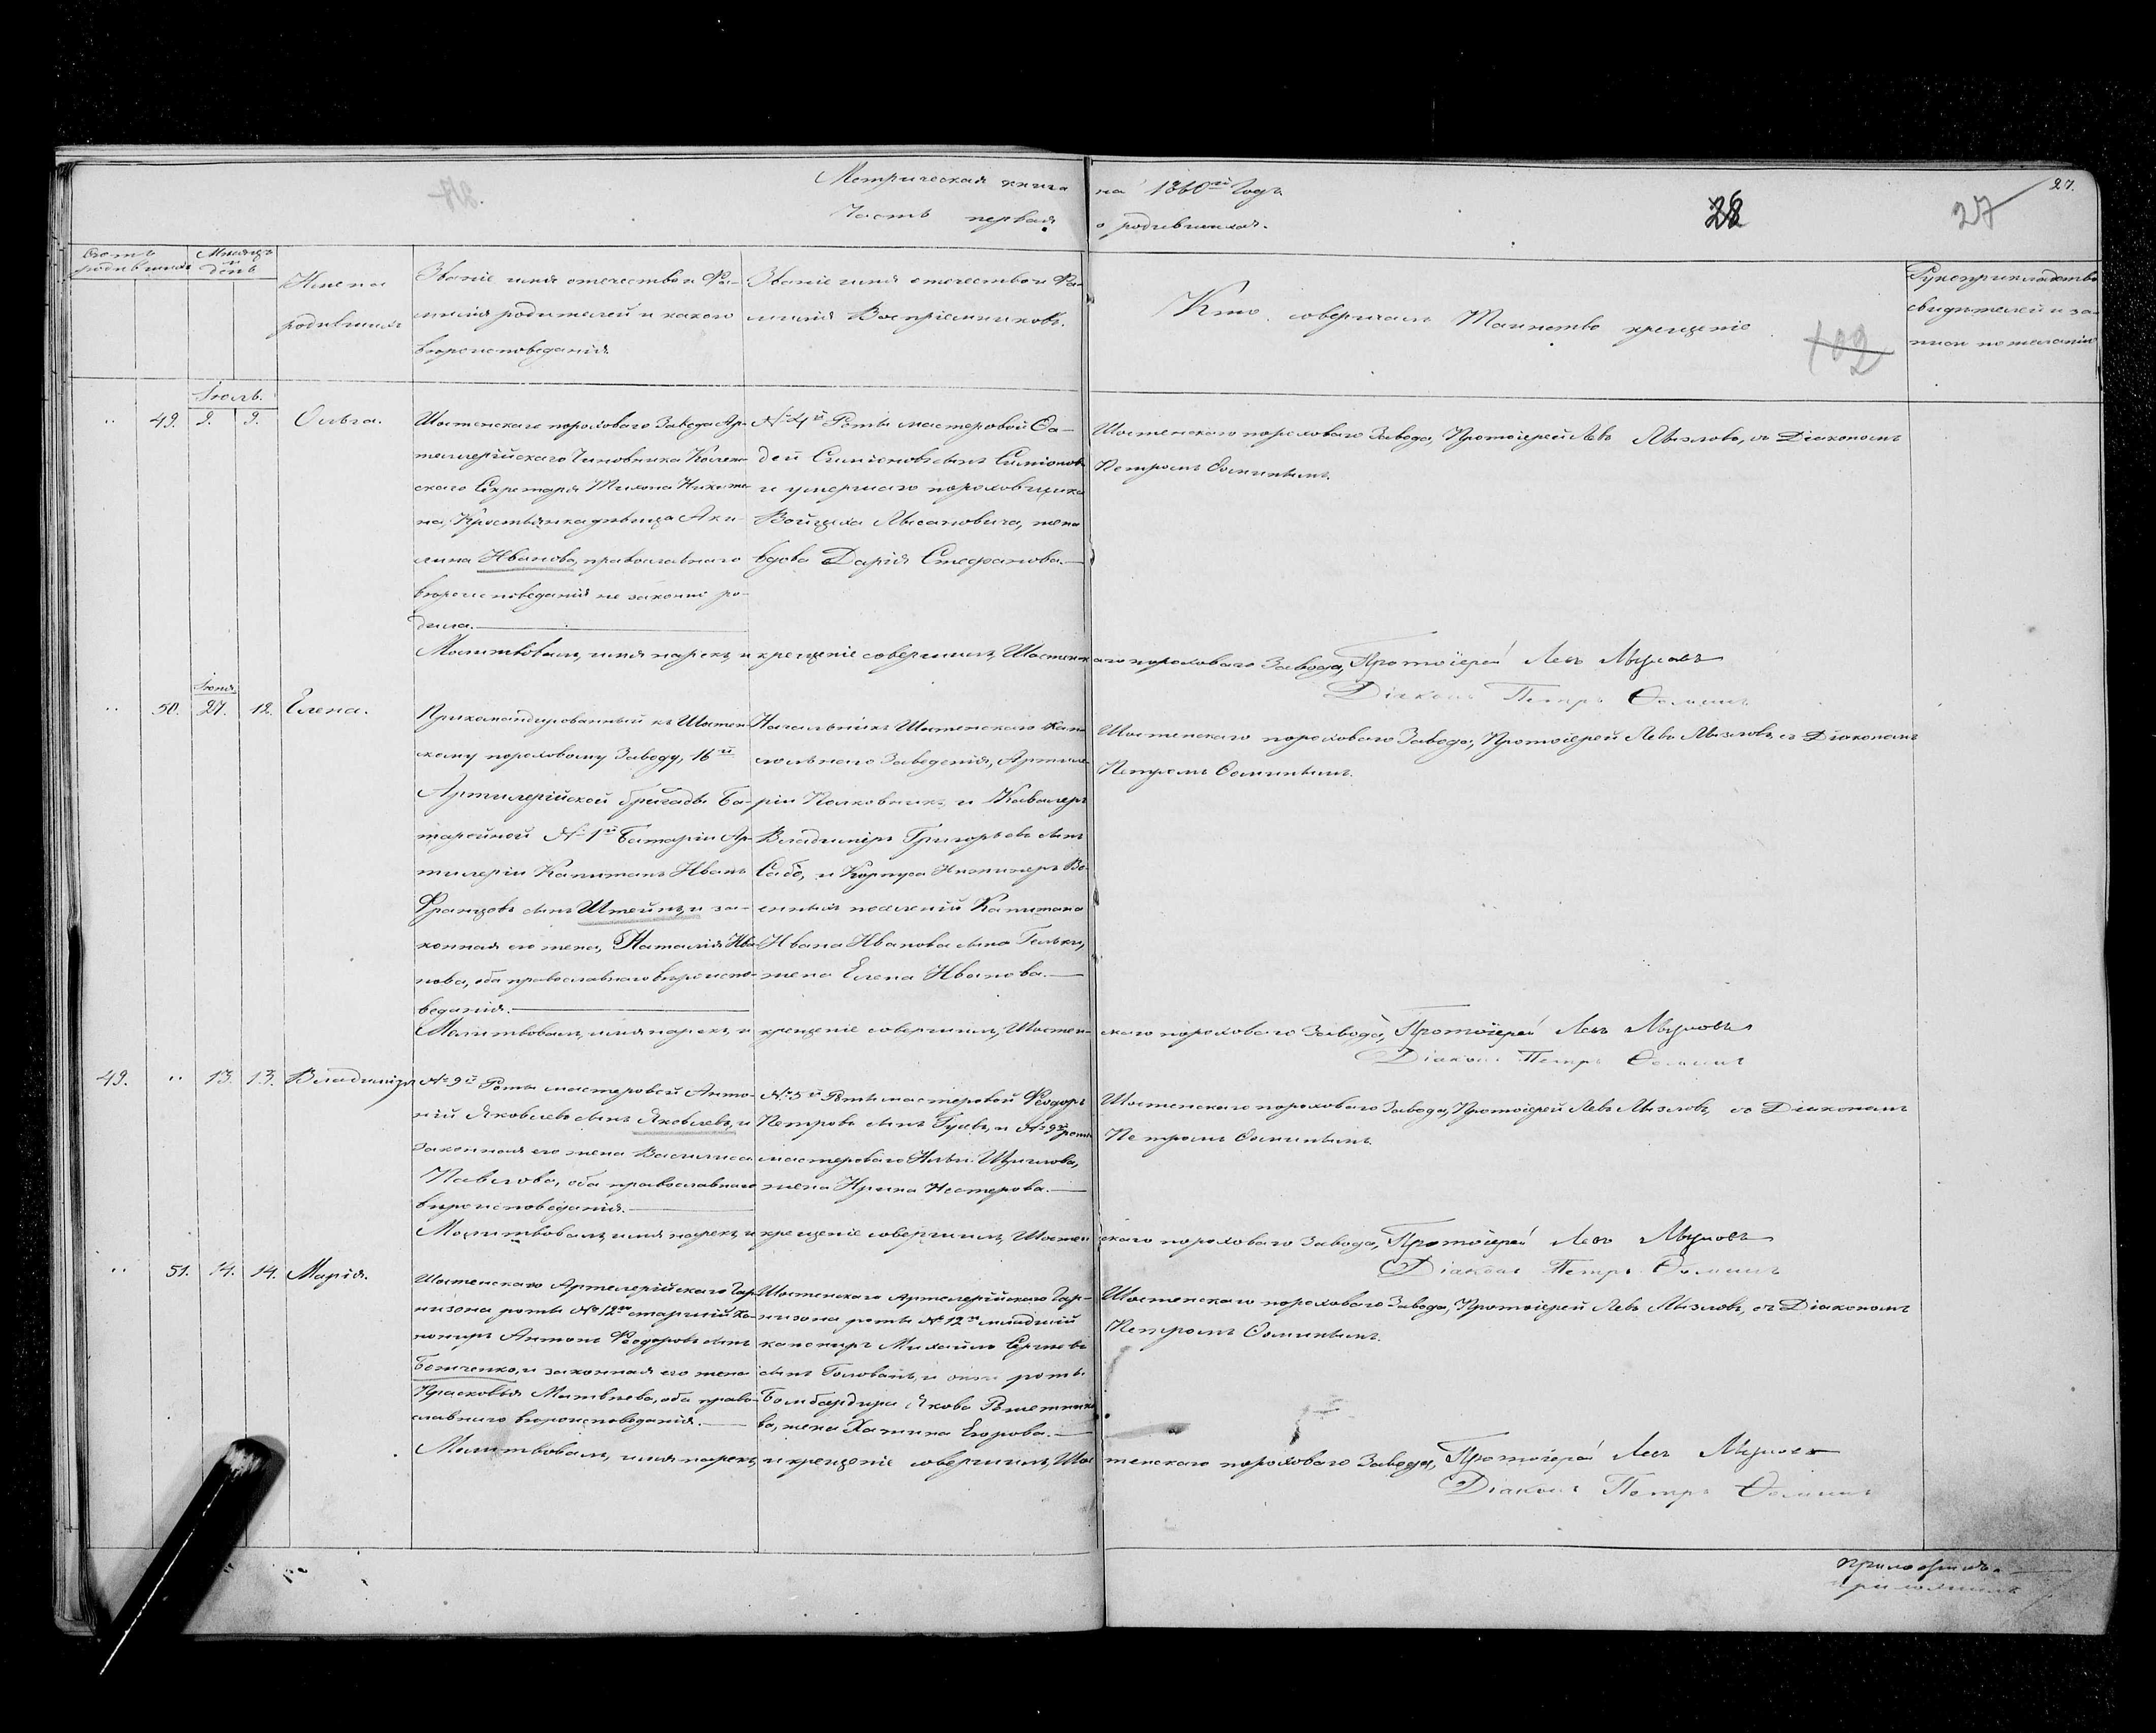 Метрическая книга на 1860й Годъ
Часть первая о родившихся.
28
27
27.
Счетъ родившихся
Мѣсяцъ и день
Имена
родившихся
Званіе имя отечество и Фа-
милія родителей и какого
вѣроисповеданія.
Званіе имя отечество и Фа-
милія Воспріемниковъ.
Кто совершалъ Таинство крещенія
102
Рукоприкладство
свидѣтелей и за-
писи по желанію
Іюль.
49. 9. 9. Ольга.
Шостенскаго пороховаго Завода Ар-
теллерійскаго Чиновника Коллеж-
скаго Секретаря Тихона Никити-
на, Крестьянка дѣвица Аки-
лина Иванова, православнаго
вѣроисповеданія не законно ро-
дила.
№ 4й Роты мастеровой Ѳа-
дей Симіоновъ сынъ Симіоновъ
и умершаго пороховщика
Войцеха Лисановича, жена
вдова Дарія Стефанова.
Шостенскаго пороховаго Завода, Протоіерей Левъ Мызловъ, съ Діакономъ
Петромъ Ѳоминымъ.
Молитвовалъ, имя нарекъ, и крещеніе совершилъ, Шостенскаго пороховаго Завода, Протоіерей Левъ Мызловъ
Діаконъ Петръ Ѳоминъ
Іюня
50. 27. 12. Елена.
Прикомандированный къ Шостен-
скому пороховому Заводу, 16й
Артилерійской бригады Ба-
тарейной № 1й Батареи Ар-
тилеріи Капитанъ Иванъ
Францовъ сынъ Штейнъ, и за-
конная его жена, Наталія Ива-
нова, оба православнаго вѣроиспо-
веданія.
Начальникъ Шостенскаго Кап-
сюльнаго Заведенія, Артиле-
ріи Полковникъ и Кавалеръ
Владиміръ Григорьевъ сынъ
Сабо, и Корпуса Инжинеръ Во-
енныхъ поселеній Капитана
Ивана Иванова сына
жена Елена Иванова.
Шостенскаго пороховаго Завода, Протоіерей Левъ Мызловъ, съ Діакономъ
Петромъ Ѳоминымъ.
Молитвовалъ, имя нарекъ, и крещеніе совершилъ, Шостенскаго пороховаго Завода, Протоіерей Левъ Мызловъ
Діаконъ Петръ Ѳоминъ
49. 13. 13. Владиміръ
№ 9й Роты мастеровой Анто-
ній Яковлевъ сынъ Яковлевъ, и
законная его жена Василиса
Павлова, оба православнаго
вѣроисповеданія.
№ 5й Роты мастеровой Ѳеодоръ
Петровъ сынъ Гусевъ, и № 9й роты
мастероваго Ильи
жена Ирина Нестерова.
Шостенскаго пороховаго Завода, Протоіерей Левъ Мызловъ, съ Діакономъ
Петромъ Ѳоминымъ.
Молитвовалъ, имя нарекъ, и крещеніе совершилъ, Шостенскаго пороховаго Завода, Протоіерей Левъ Мызловъ
Діаконъ Петръ Ѳоминъ
51. 14. 14. Марія.
Шостенскаго Артелерійскаго Гар-
низона роты № 12го старшій ка-
нониръ Антонъ Ѳеодоровъ сынъ
и законная его жена
Прасковья Матвѣева, оба право-
славнаго вѣроисповеданія.
Шостенскаго Артелерійскаго Гар-
низона роты № 12го младшій
канониръ Михаилъ Сергѣевъ
сынъ Головань, и роты
Бомбардира Якова Решетнико-
ва, жена Хатина Егорова.
Шостенскаго пороховаго Завода, Протоіерей Левъ Мызловъ, съ Діакономъ
Петромъ Ѳоминымъ.
Молитвовалъ, имя нарекъ, и крещеніе совершилъ, Шостенскаго пороховаго Завода, Протоіерей Левъ Мызловъ
Діаконъ Петръ Ѳоминъ